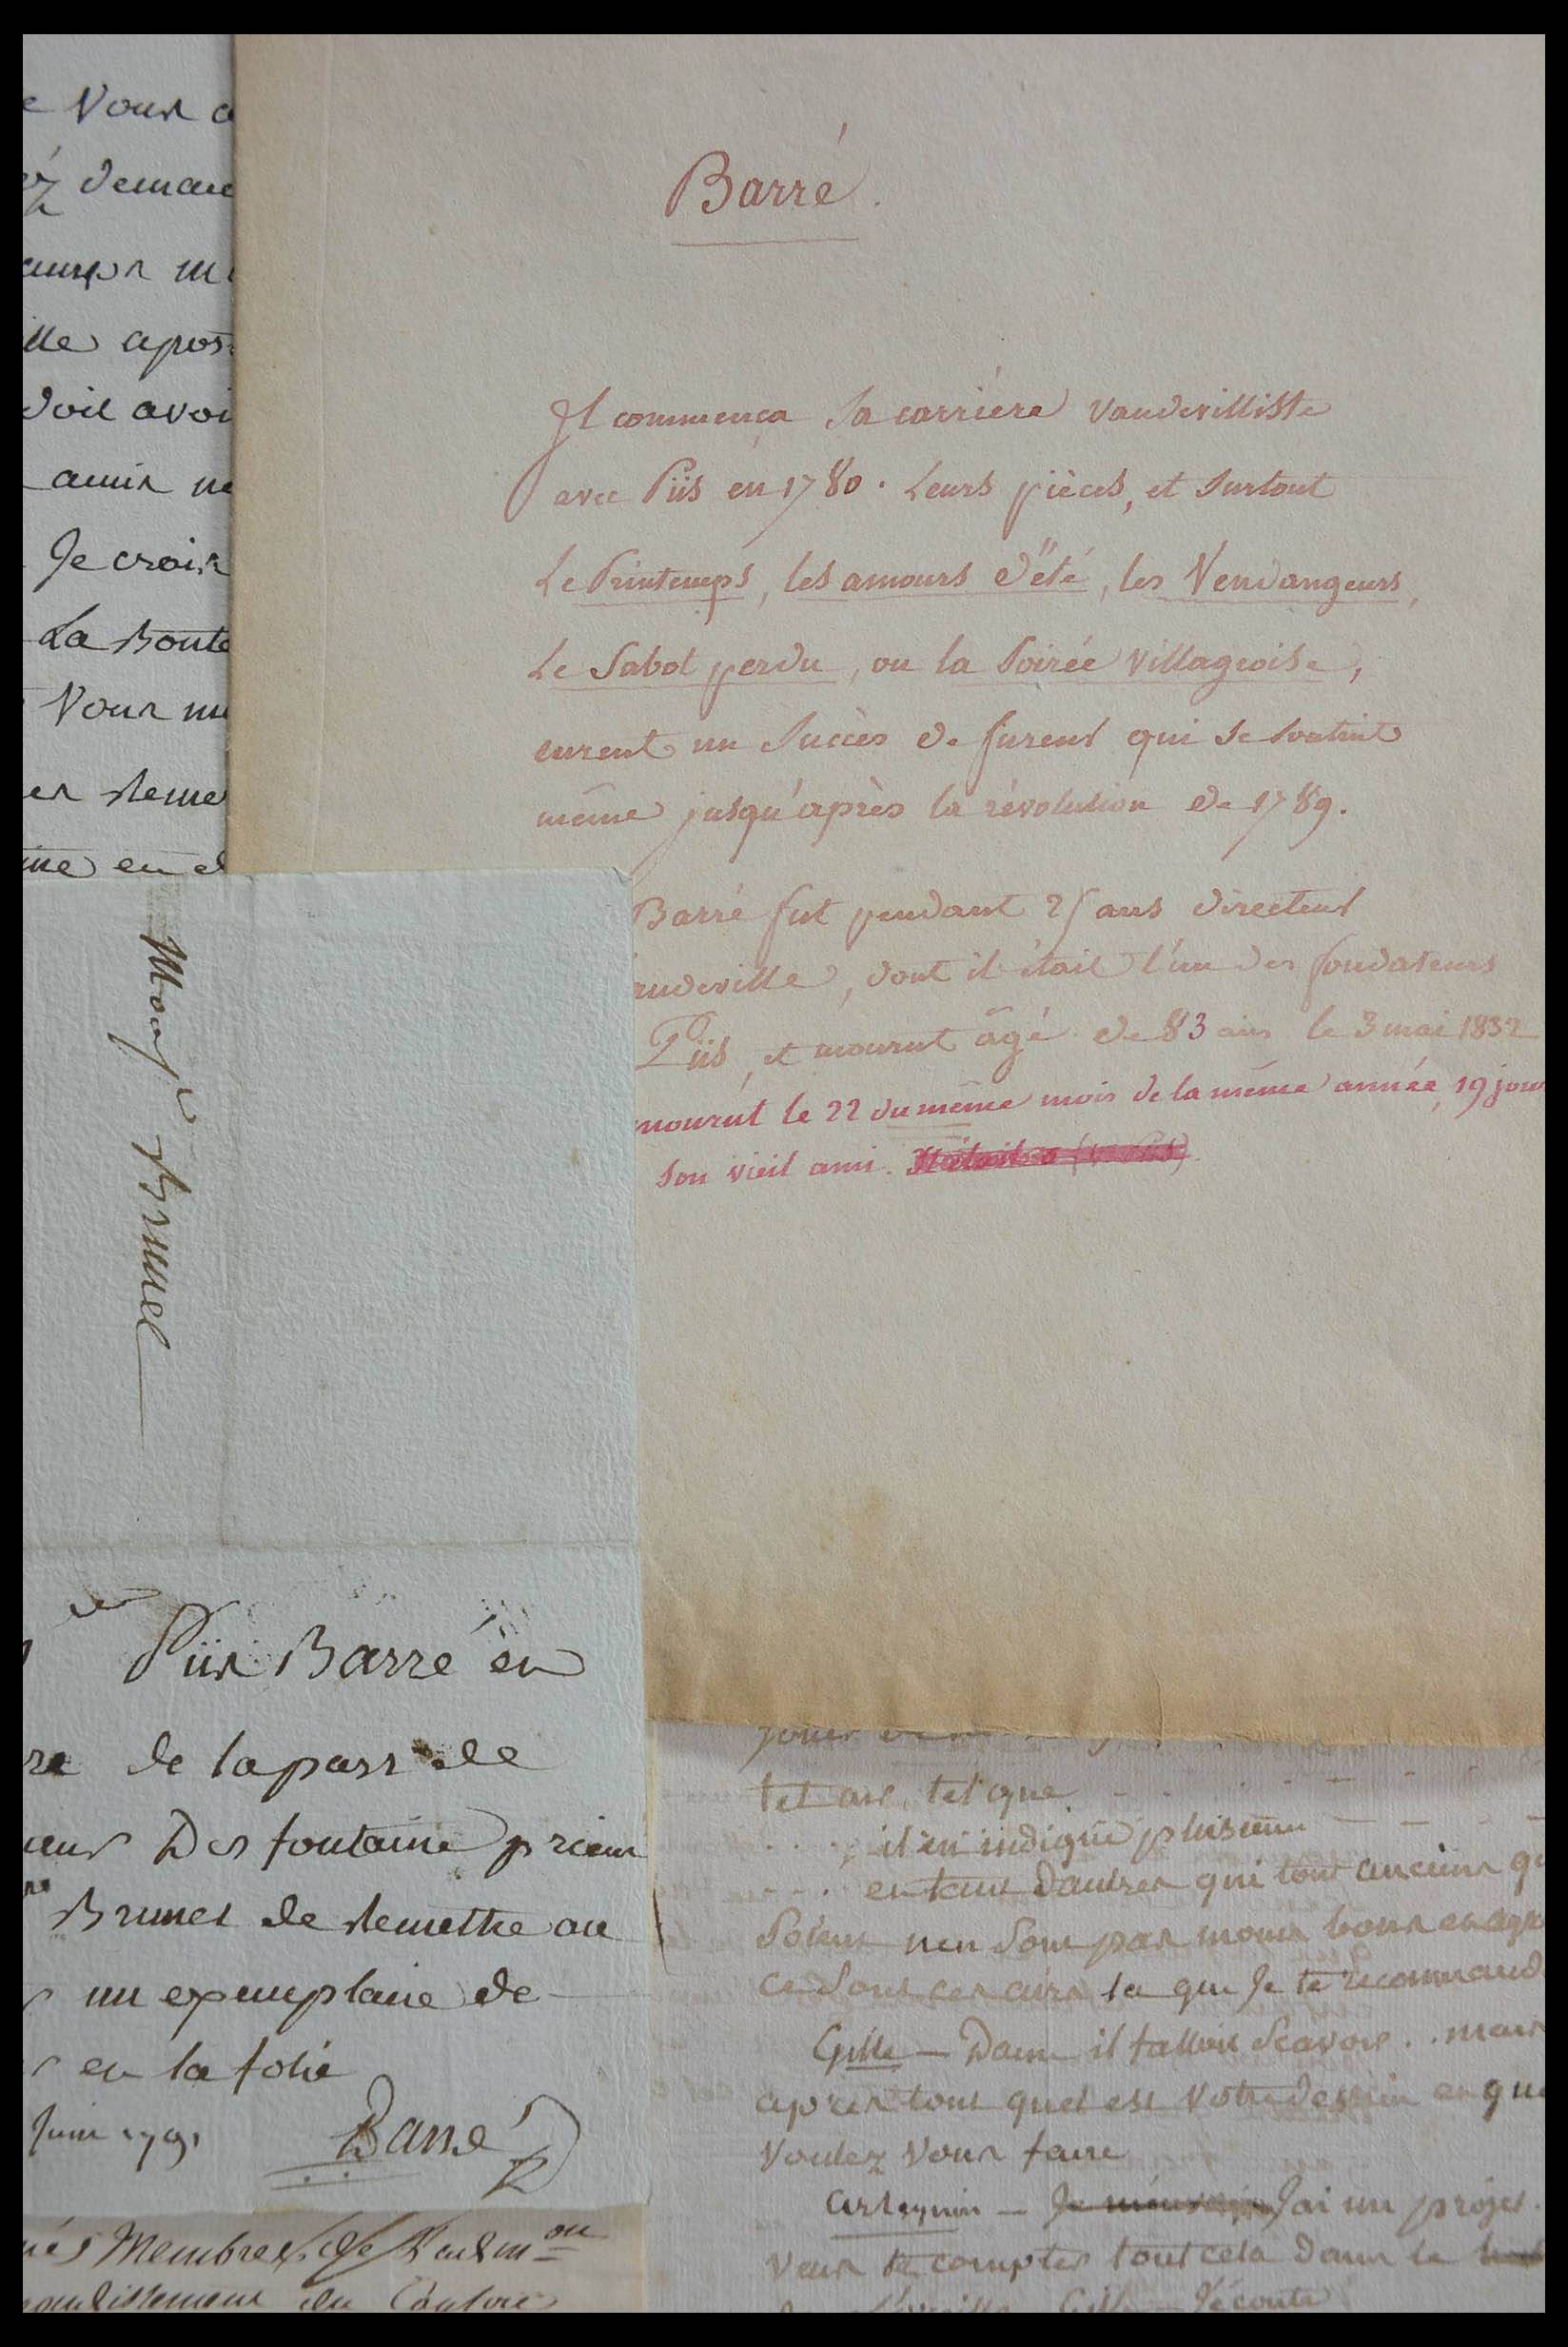 Vous
demand
apos
doit avoi
amis
Je crois
La Bonté
Vous
en
Barré.
Il commença sa carrière vaudevilliste
avec Piis en 1780. Leurs pièces, et surtout
Le Printemps, les amours d'été, les Vendangeurs,
Le Sabot perdu, ou la Soirée villageoise,
eurent un succès de fureur qui se soutint
même jusqu'après la révolution de 1789.
Barré fut pendant 25 ans directeur
audeville, dont il était l'un des fondateurs
Piis, et mourut âgé de 83 ans le 3 mai 1832
mourut le 22 du même mois de la même année, 19 jour
son vieil ami.
Brunet
Piis Barré en
re de la part de
Des fontaine prient
Brunet de remettre au
un exemplaire de
en la folie
Juin 1791 Barré
Membres
du
tel air, tel que
il en indique plusieurs
en tout d'autres qui tout anciens qu
soient n'en sont pas moins bons
ce sont ces airs la que je te recommand
Gille — Dame il falloit scavoir .. mais
après tout quel est votre dessein en que
voulez vous faire
arlequin — J'ai un projet.
veux te compter tout cela dans le
Gille — J'écoute